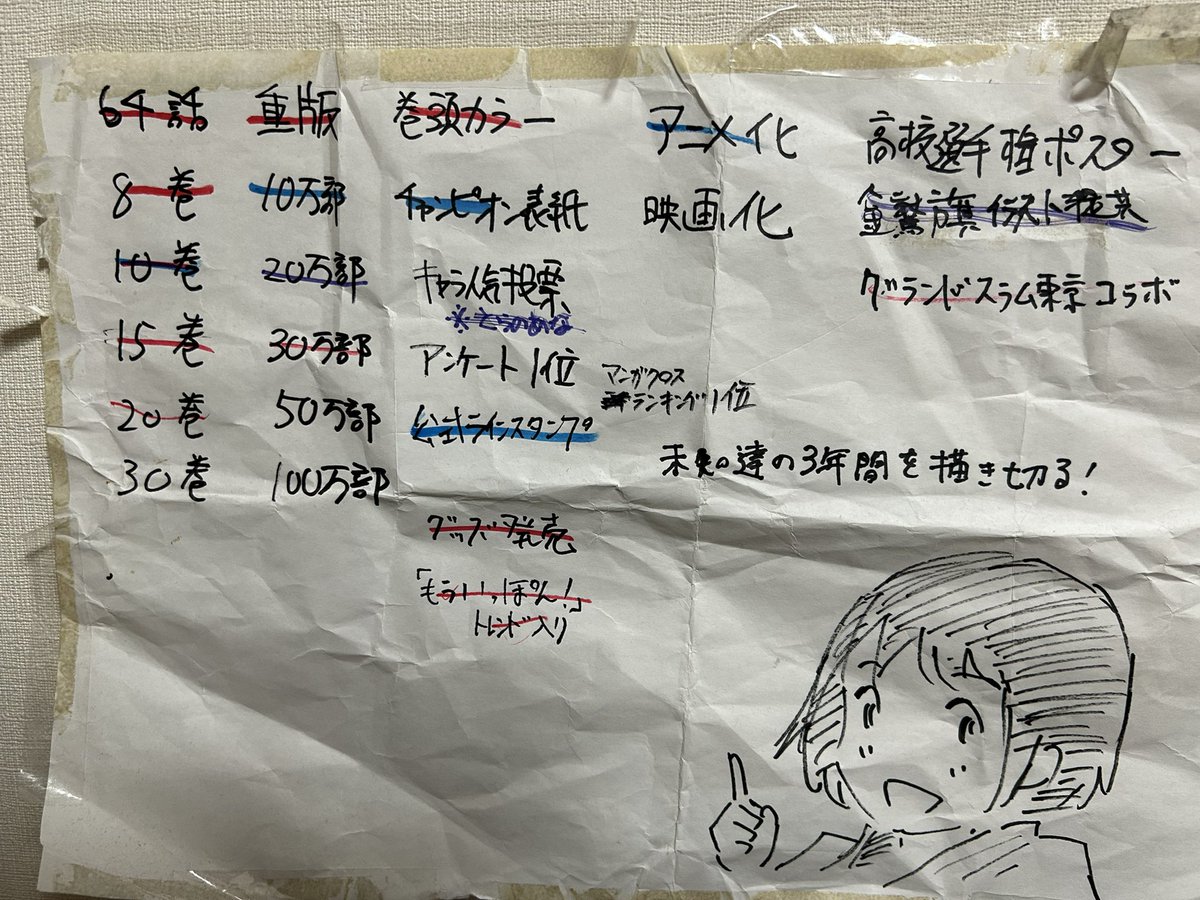 64話
8巻
10巻
15巻
20巻
30巻
重版
10万部
20万部
30万部
50万部
100万部
巻頭カラー
チャンピオン表紙
キャラ人気投票
※とらのあな
アンケート1位
公式ラインスタンプ
グッズ発売
「もういっぽん!」
トレンド入り
マンガクロス
ランキング1位
アニメ化
映画化
高校選手権ポスター
金鷲旗イラスト
グランドスラム東京コラボ
未知達の3年間を描き切る!